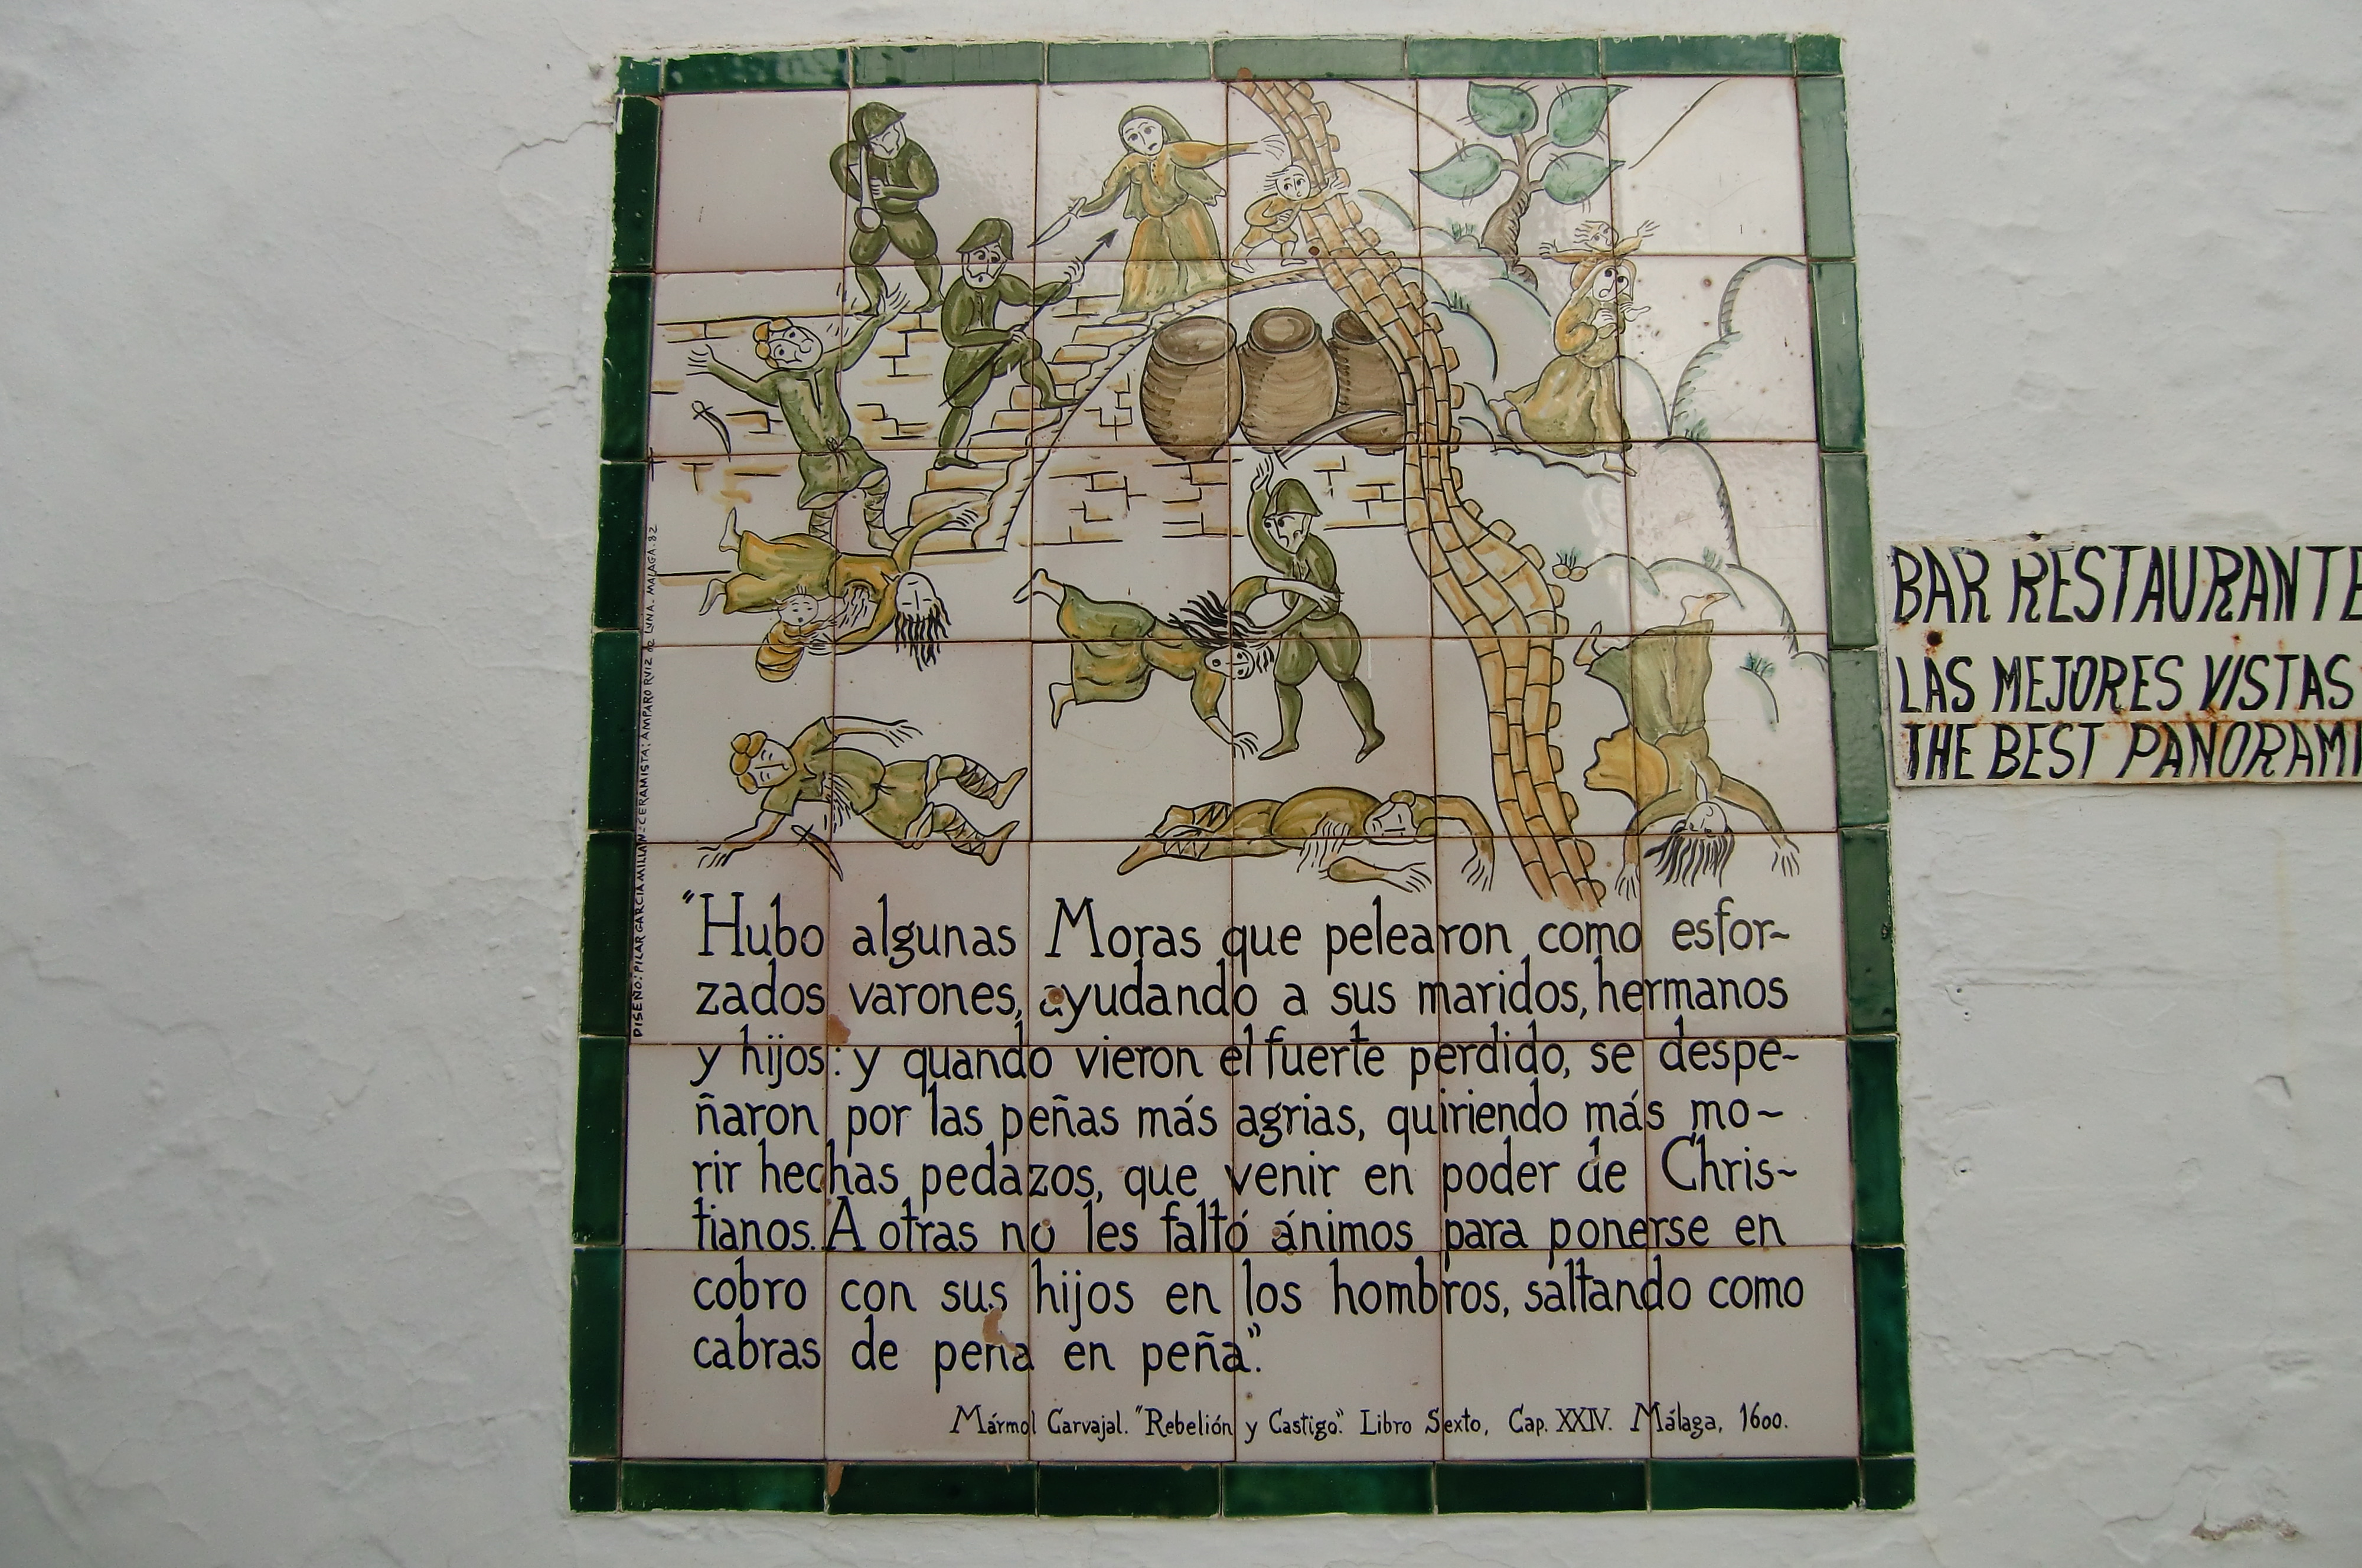 "Hubo algunas Moras que pelearon como esfor~
zados varones, ayudando a sus maridos, hermanos
y hijos: y quando vieron el fuerte perdido, se despe~
ñaron por las peñas más agrias, quiriendo más mo~
rir hechas pedazos, que venir en poder de Chris~
tianos. A otras no les faltó ánimos para ponerse en
cobro con sus hijos en los hombros, saltando como
cabras de peña en peña".
Mármol Carvajal. "Rebelión y Castigo". Libro Sexto, Cap. XXIV. Málaga, 1600.
DISEÑO: PILAR GARCIA MILLAN - CERAMISTA: AMPARO RUIZ DE LUNA. MALAGA. 82
BAR RESTAURANTE
LAS MEJORES VISTAS
THE BEST PANORAMI